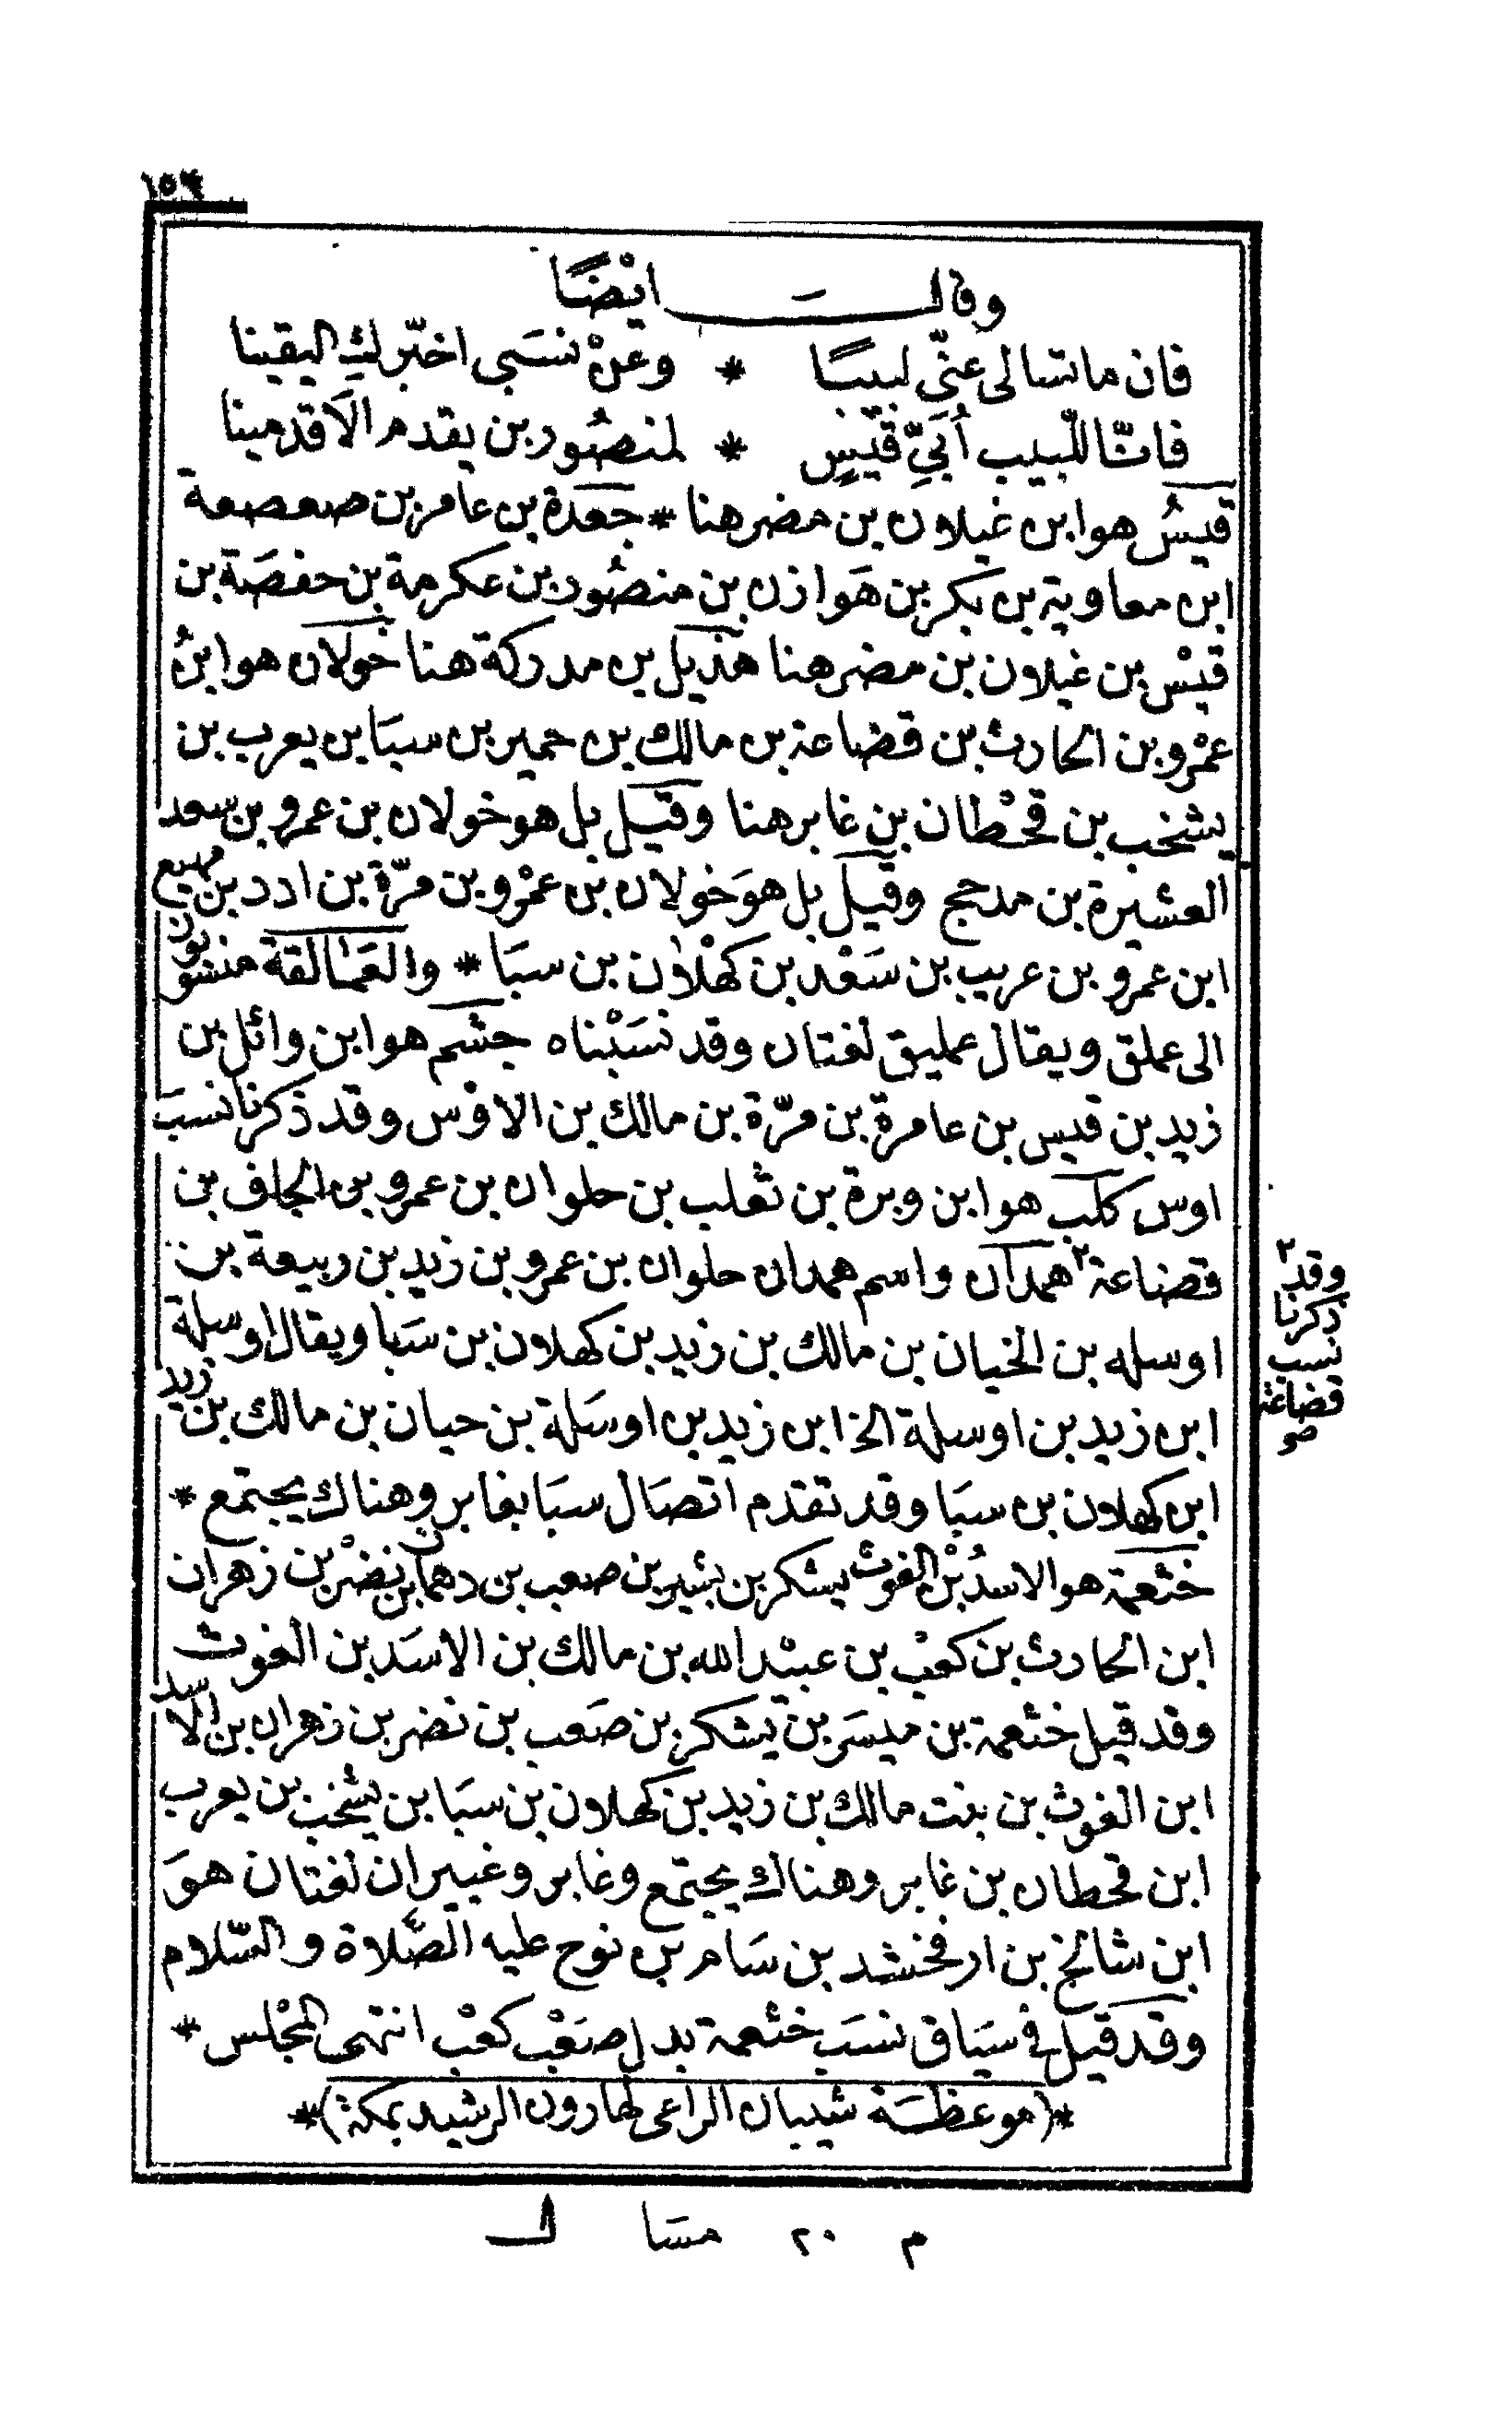 ١٥٣
وقالـــ ايْضًا
فان ما تسالى عنّى لبيبًا * وعنْ نسَبى اخبّرك اليقينا
فانّا للّبيب أبَىِّ قيْسٍ * لمنصُور بن يقدم الاَقدمينا
قيسُ هو ابن غيلان بن مضر هنا * جعدة بن عامر بن صعصعة
ابن معاوية بن بكر بن هَوازن بن منصُور بن عكرمة بن حفصَة بن
قيْس بن غيلان بن مضر هنا هذيل بن مدركة هنا خولان هو ابنُ
عمْرو بن الحارث بن قضاعة بن مالك بن حمير بن سبَا بن يعرب بن
يشخب بن قحْطان بن غابر هنا وقيل بل هو خولان بن عمرو بن سعد
العشيرة بن مدحج وقيل بل هوَ خولان بن عمْرو بن مرّة بن ادد بن مهيع
ابن عمرو بن عريب بن سَعْد بن كهْلان بن سبَا * والعَمَالقة منسوبون
الى عملق ويقال عمليق لغتان وقد نسَبْناه جشم هو ابن وائل بن
زيد بن قيس بن عامرة بن مرّة بن مالك بن الاوْس وقد ذكرنا نسبَ
اوس كلب هو ابن وبرة بن تعلب بن حلوان بن عمرو بن الحاف بن
قضاعة ٢ همدان واسم همدان حلوان بن عمرو بن زيد بن ربيعة بن
اوسله بن الخيان بن مالك بن زيد بن كهلان بن سَبا ويقال اوسلة
ابن زيد بن اوسلة الخ ابن زيد بن اوسَلة بن حيان بن مالك بن زيد
ابن كهلان بن سبَا وقد تقدم اتصَال سبَا بغابر وهناك يجتمع *
خثعمة هو الاسدُ بْن الغوث يشكر بن بشير بن صعب بن دهمان بن نضْر بن زهران
ابن الحارث بن كعْب بن عبيْد الله بن مالك بن الاسَد بن الغوث
وقد قيل خثعمة بن ميسَر بن يشكر بن صَعب بن نضر بن زهران بن الاسد
ابن الغوث بن بنت مالك بن زيد بن كهلان بن سبَا بن يشخب بن يعرب
ابن قحطان بن غابر وهناك يجتمع وغابر وغيبران لغتان هوَ
ابن شالخ بن ارفخشد بن سَام بن نوح عليه الصّلاة والسّلام
وقد قيل فى سيَاق نسَب خثعمة بدل صعْب كعْب انتهى المجْلس *
*(موعظَة شيبان الراعى لهارون الرشيد بمكة)*
٢ وقد
ذكرنا
نسب
قضاعة
صح
م ٢٠ مسَا لـــ